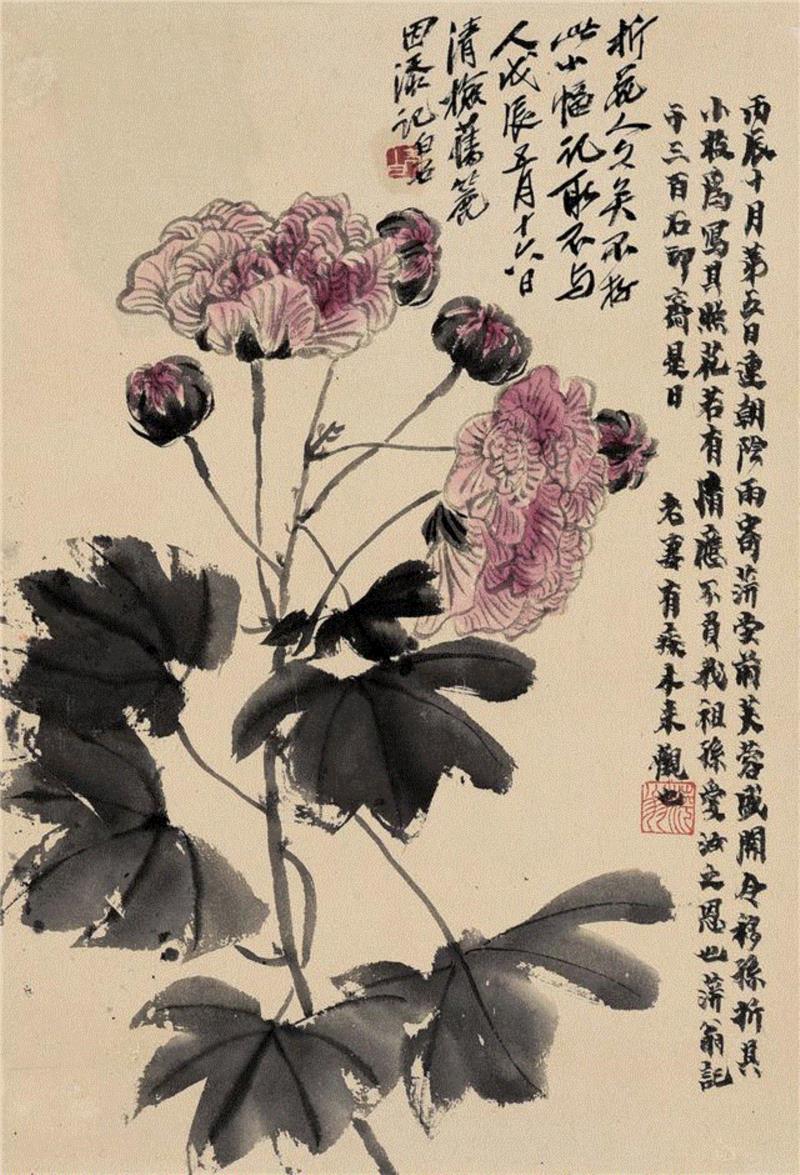 丙辰十月第五日連朝陰雨寄萍堂前芙蓉盛開令移孫折其
小枝為寫其照花若有情應不負我祖孫愛汝之恩也萍翁記
于三百石印齋是日　老妻有疾未來觀也
折花人久矣不在
此小幅記取不与
人戊辰五月十六日
清檢舊簏
因添記白石